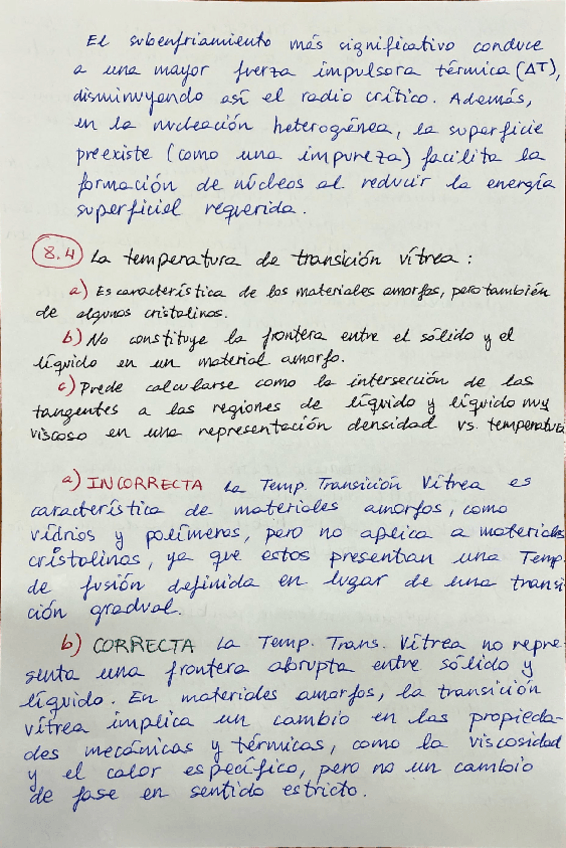 El subenfriamiento más significativo conduce
a una mayor fuerza impulsora térmica (ΔT),
disminuyendo así el radio crítico. Además,
en la nucleación heterogénea, la superficie
preexiste (como una impureza) facilita la
formación de núcleos al reducir la energía
superficial requerida.
8.4) La temperatura de transición vítrea :
a) Es característica de los materiales amorfos, pero también
de algunos cristalinos.
b) No constituye la frontera entre el sólido y el
líquido en un material amorfo.
c) Puede calcularse como la intersección de las
tangentes a las regiones de líquido y líquido muy
viscoso en una representación densidad vs. temperatura
a) INCORRECTA La Temp. Transición Vítrea es
característica de materiales amorfos, como
vidrios y polímeros, pero no aplica a materiales
cristalinos, ya que estos presentan una Temp.
de fusión definida en lugar de una transi-
ción gradual.
b) CORRECTA La Temp. Trans. Vítrea no repre-
senta una frontera abrupta entre sólido y
líquido. En materiales amorfos, la transición
vítrea implica un cambio en las propieda-
des mecánicas y térmicas, como la viscosidad
y el calor específico, pero no un cambio
de fase en sentido estricto.